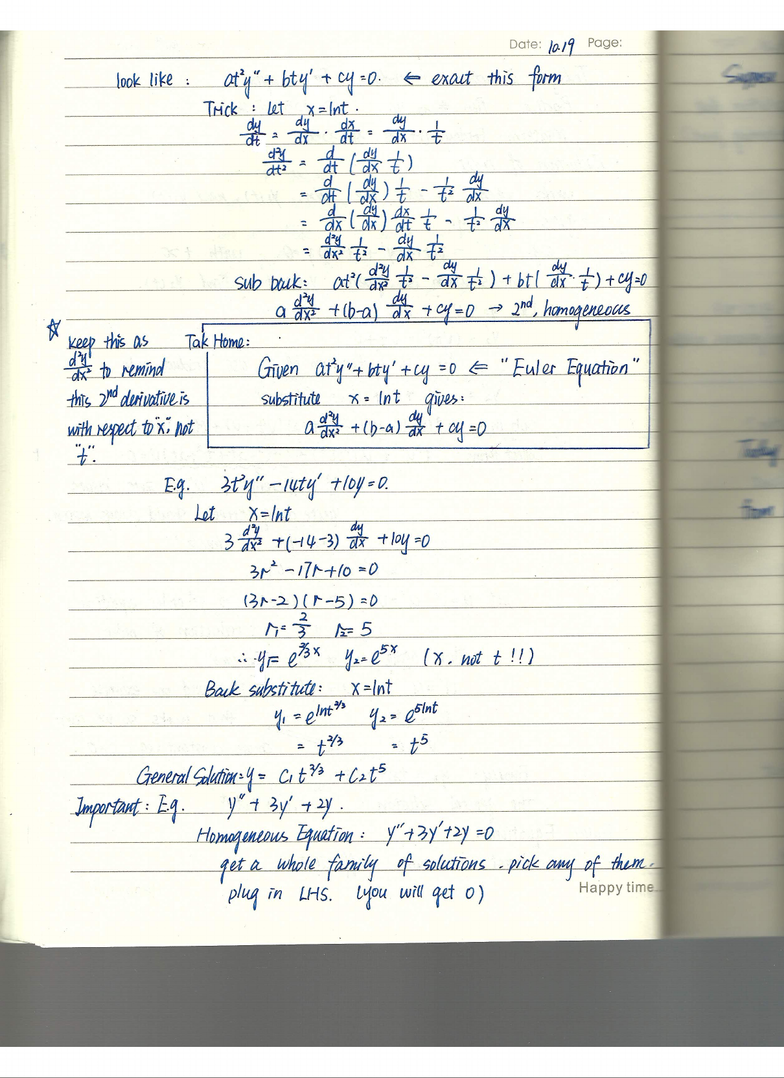 Date: 10.19 Page:
look like : at²y" + bty' + cy = 0. ← exact this form
Trick : Let x = lnt.
dy/dt = dy/dx · dx/dt = dy/dx · 1/t
d²y/dt² = d/dt (dy/dx 1/t)
= d/dt (dy/dx) 1/t - 1/t² dy/dx
= d/dx (dy/dx) dx/dt 1/t - 1/t² dy/dx
= d²y/dx² 1/t² - dy/dx 1/t²
sub back: at²(d²y/dx² 1/t² - dy/dx 1/t²) + bt(dy/dx · 1/t) + cy=0
a d²y/dx² + (b-a) dy/dx + cy = 0 → 2nd, homogeneous
☆ keep this as
d²y/dx² to remind
this 2nd derivative is
with respect to "x", not
"t".
Tak Home:
Given at²y" + bty' + cy = 0 ⇐ "Euler Equation"
substitute x = lnt gives:
a d²y/dx² + (b-a) dy/dx + cy = 0
E.g. 3t²y" - 14ty' + 10y = 0.
Let x = lnt
3 d²y/dx² + (-14-3) dy/dx + 10y = 0
3r² - 17r + 10 = 0
(3r-2)(r-5) = 0
r₁ = 2/3 r₂ = 5
∴ y₁ = e^(2/3 x) y₂ = e^(5x) (x, not t !!)
Back substitute: x = lnt
y₁ = e^(lnt^(2/3)) y₂ = e^(5lnt)
= t^(2/3) = t⁵
General Solution = y = C₁ t^(2/3) + C₂ t⁵
Important : E.g. y" + 3y' + 2y .
Homogeneous Equation : y" + 3y' + 2y = 0
get a whole family of solutions . pick any of them.
plug in LHS. (you will get 0)
Happy time
Suppose
Today
from